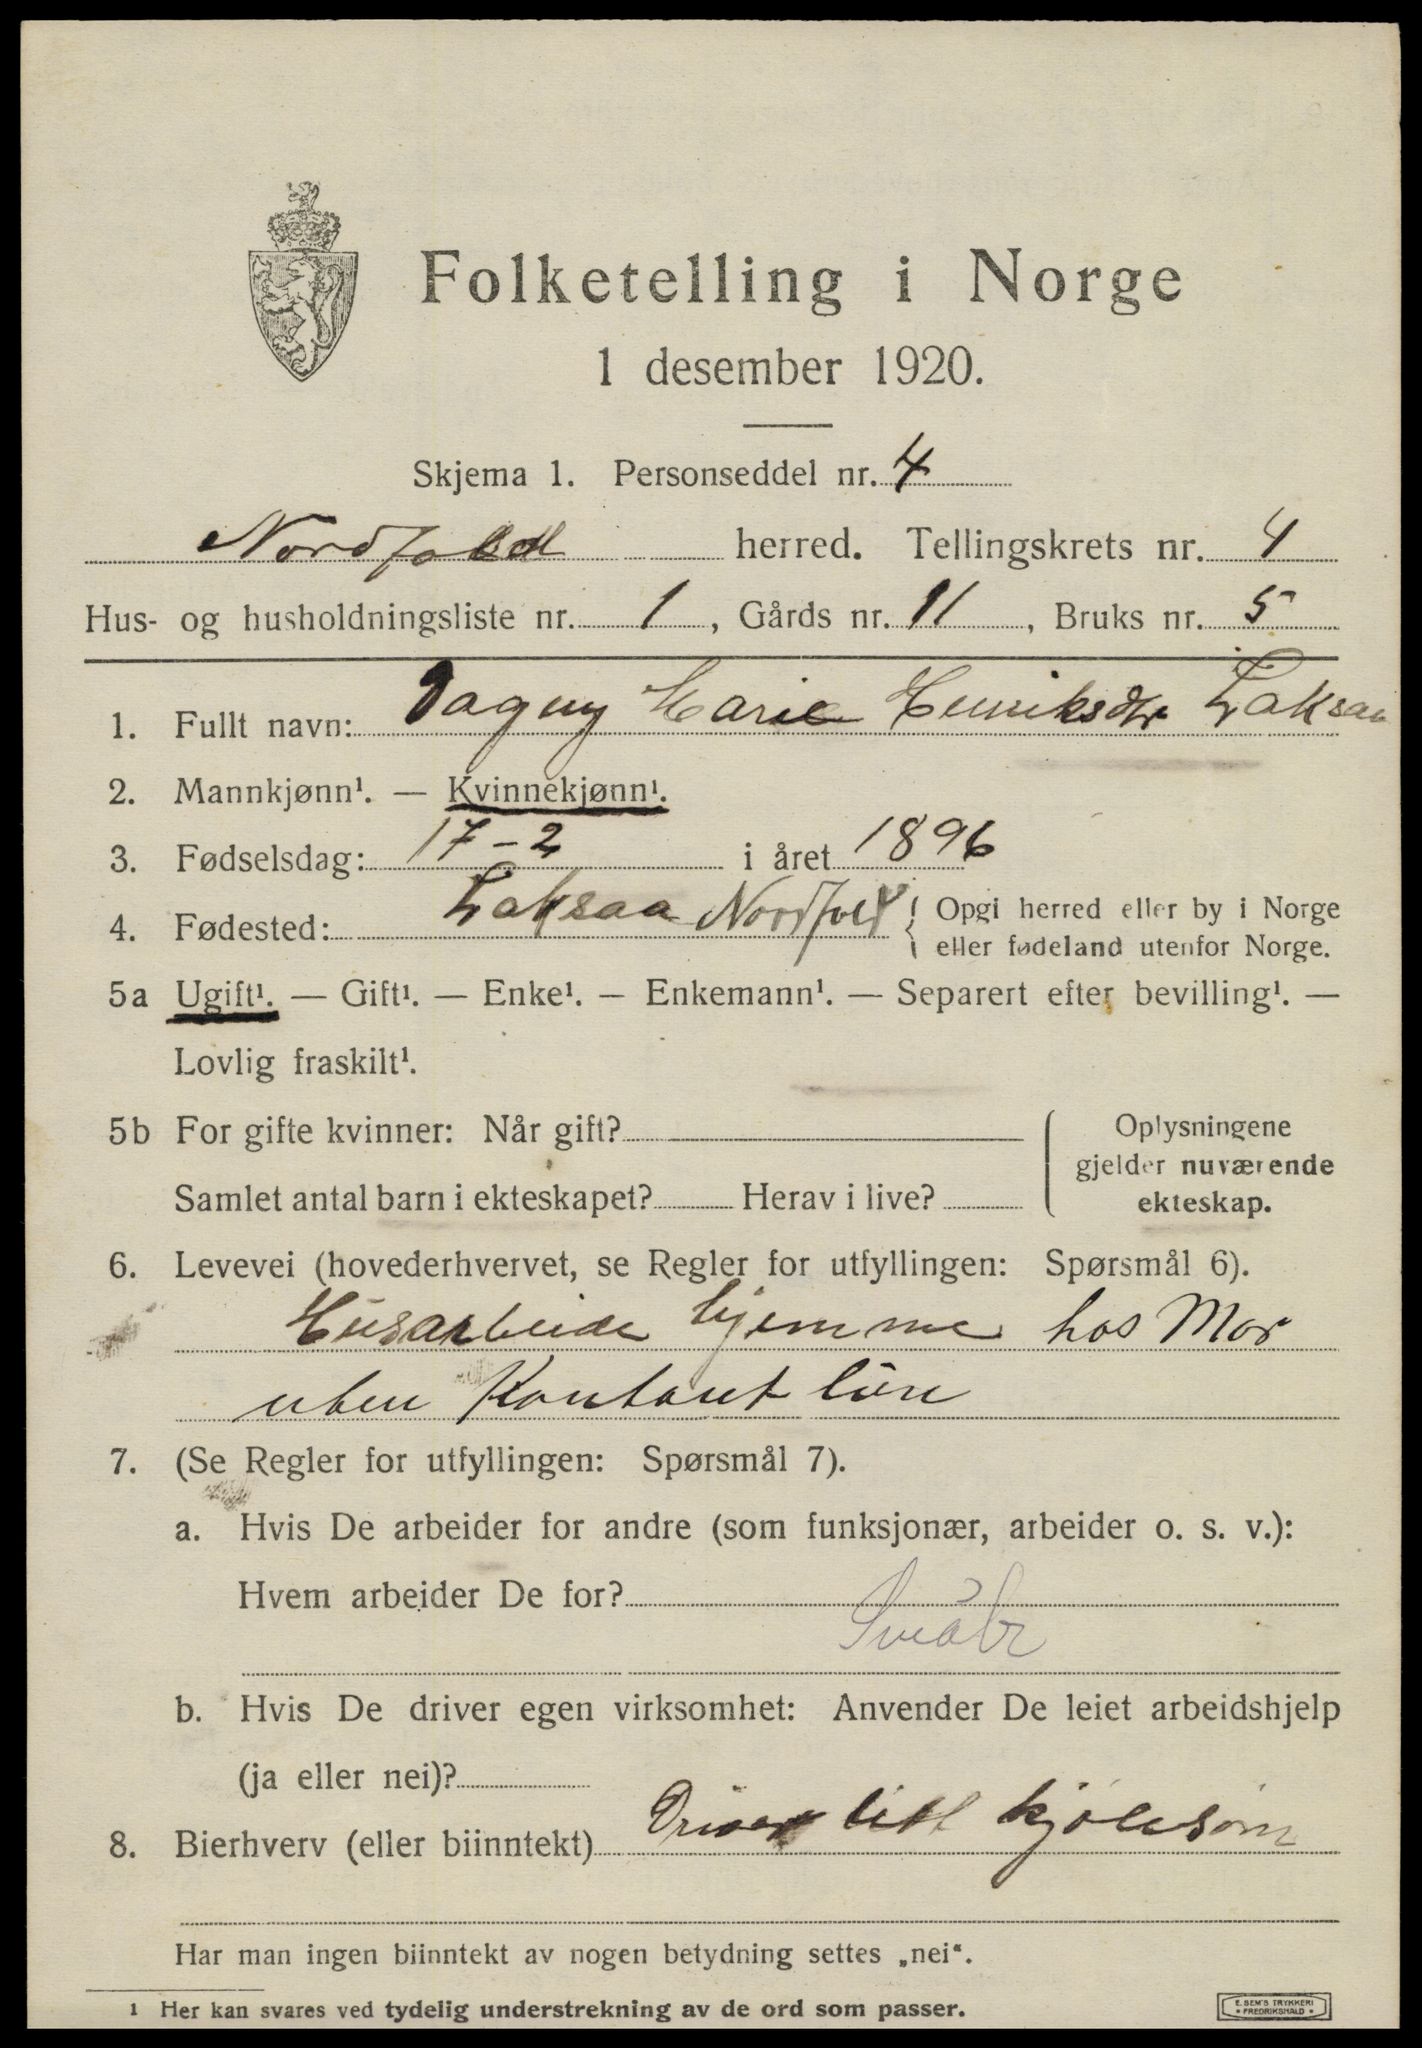 Folketelling i Norge
1 desember 1920.
Skjema 1. Personseddel nr. 4
Nordfold herred. Tellingskrets nr. 4
Hus- og husholdningsliste nr. 1, Gårds nr. 11, Bruks nr. 5
1. Fullt navn: Dagny Marie Henriksdtr Laksaa
2. Mannkjønn¹. — Kvinnekjønn¹.
3. Fødselsdag: 17-2 i året 1896
4. Fødested: Laksaa Nordfold { Opgi herred eller by i Norge
eller fødeland utenfor Norge.
5a Ugift¹. — Gift¹. — Enke¹. — Enkemann¹. — Separert efter bevilling¹. —
Lovlig fraskilt¹.
5b For gifte kvinner: Når gift?
Samlet antal barn i ekteskapet? Herav i live?
Oplysningene
gjelder nuværende
ekteskap.
6. Levevei (hovederhvervet, se Regler for utfyllingen: Spørsmål 6).
Husarbeide hjemme hos Mor
uten Kontant lön
7. (Se Regler for utfyllingen: Spørsmål 7).
a. Hvis De arbeider for andre (som funksjonær, arbeider o. s. v.):
Hvem arbeider De for?
b. Hvis De driver egen virksomhet: Anvender De leiet arbeidshjelp
(ja eller nei)?
8. Bierhverv (eller biinntekt) Driver litt kjolesöm
Har man ingen biinntekt av nogen betydning settes „nei“.
1 Her kan svares ved tydelig understrekning av de ord som passer.
E. SEM'S TRYKKERI
• FREDRIKSHALD •